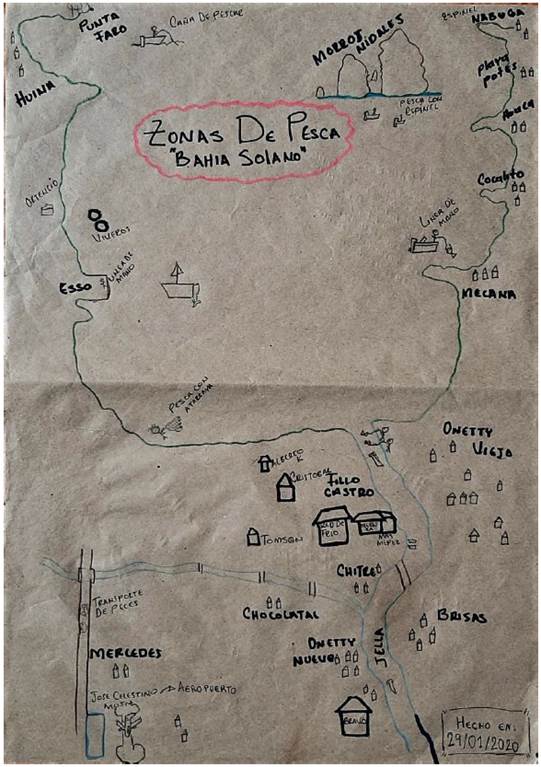 PUNTA
FARO
CAÑA DE PESCAR
HUINA
MORROS
NIDALES
PESCA CON
ESPINEL
ESPINEL
NABUGA
PLAYA
POTES
ZONAS DE PESCA
"BAHIA SOLANO"
COCALITO
VIVEROS
ESSO
LINEA DE
MANO
LINEA DE
MANO
MECANA
PESCA CON
ATARRAYA
ALBERTO
K
CRISTOBAL
TILLO
CASTRO
CUARTO DE
FRIO
MAR
TOMSON
ONETTY
VIEJO
CHITRE
CHOCOLATAL
TRANSPORTE
DE PECES
MERCEDES
JOSE CELESTINO
MUTIS
AEROPUERTO
ONETTY
NUEVO
JELLA
BRISAS
BRAVO
HECHO EN:
29/01/2020